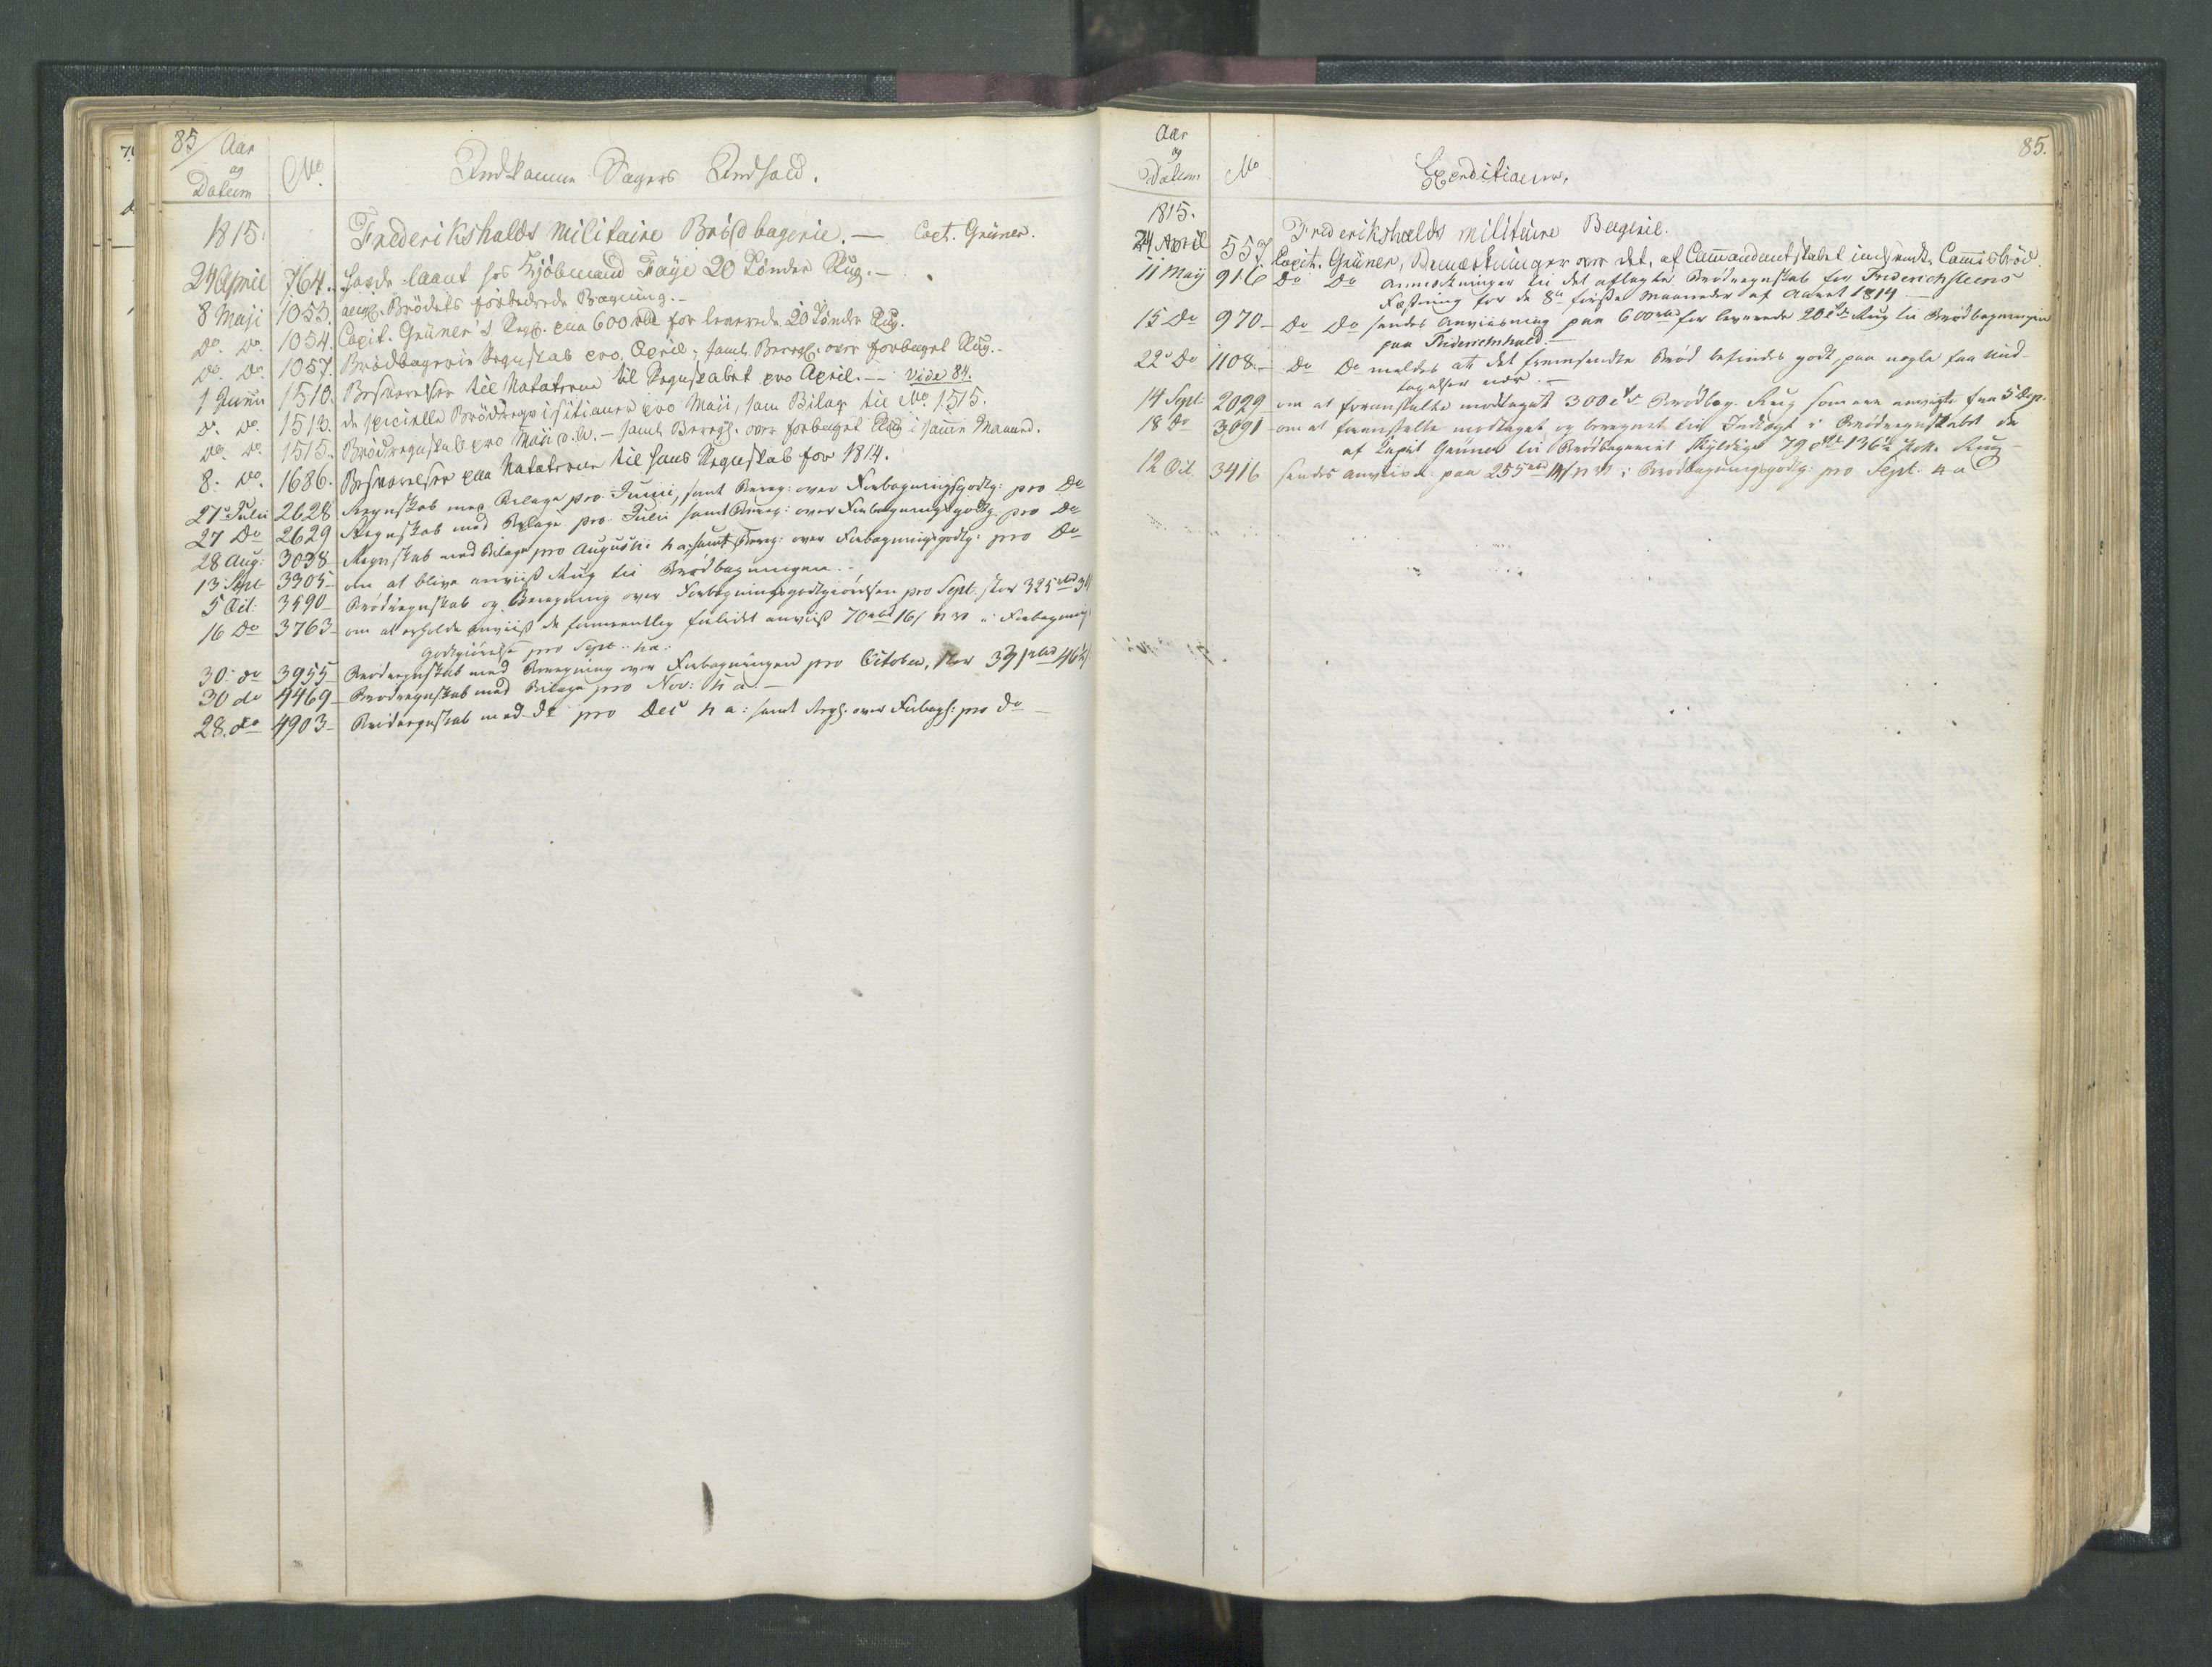 85/ Aar
og
Datum
No
Indkomne Sagers Indhold.
1815.
Frederikshalds Militaire Brødbagerie. — Capt. Grüner.
24 April 764. havde laant hos Kjöbmand Faye 20 Tönder Rug. —
8 Maji 1053. Brödets forbedrede Bagning. —
do. do. 1054. Capit. Grüner's Regg. paa 600 rbd for leverede 20 Tönder Rug.
do. do. 1057. Brödbagerie Regnskab pro. April, samt Beregg. over forbaget Rug. —
1 Junii 1510. Besvarelser til Notaterne til Regnskabet pro April. — Vide 84.
do. do. 1513. de specielle Brödreqvisitioner pro Maii, som Bilag til No. 1515.
do. do. 1515. Brödregnskab pro Maii d. A. — samt Beregg. over forbaget Rug i samme Maaned.
8. do. 1686. Besvarelser paa Notaterne til hans Regnskab for 1814.
27 Julii 2628 Regnskab med Bilage pro Junii, samt Bereg: over Forbagningsgodtg: pro Do
27 Do 2629 Regnskab med Bilage pro Julii samt Bereg: over Forbagningsgodtg: pro Do
28 Aug: 3038 Regnskab med Bilage pro Augusti h a: samt Bereg: over Forbagningsgodtg: pro Do
13 Sept 3305 om at blive anviist Rug til Brödbagningen —
5 Oct: 3590 Brödregnskab og Beregning over Forbagningsgodtgiörelsen pro Sept. stor 325 rbd
16 Do 3763 om at erholde anviist de formeentlig forlidet anviist 70 rbd 16 s n v i Forbagnings
Godtgiörelse pro Sept. h a:
30 do 3955 Brödregnskab med Beregning over Forbagningen pro October, stor
30 do 4469 Brödregnskab med Bilage pro Nov: h a. —
28. do 4903 Brödregnskab med do pro Dec h a: samt Regg. over Forbagg: pro do —
Aar
og
Datum
No
Expeditioner.
85.
1815.
Frederikshalds militaire Bagerie.
24 April 557. Capit. Grüner, Bemærkninger over det, af Commandantskabet indsendte Commisbröd.
11 Maij 916 Do Do Anmærkninger til det aflagte Brödregnskab for Friderichsteens
Fæstning for de 8te förste Maaneder af Aaret 1814 —
15 Do 970 Do Do sendes Anviisning paa 600 rbd for leverede 20 Tdr Rug til Brödbagningen
paa Friderichshald. —
22 Do 1108 Do Do meldes at det fremsendte Bröd befindes godt, paa nogle faa Und-
tagelser nær. —
14 Sept 2029 om at foranstalte modtaget 300 Tdr Brödbag. Rug som ere anviiste fra 5 Dep.
18 Do 3091 om at foranstalte modtaget og beregnet til Indtægt i Brödregnskabet de
af Capit Grüner til Brödbageriet skyldige Rug
12 Oct 3416 sendes anviisn: paa 255 rbd n v i Brödbagningsgodtg: pro Sept. h a